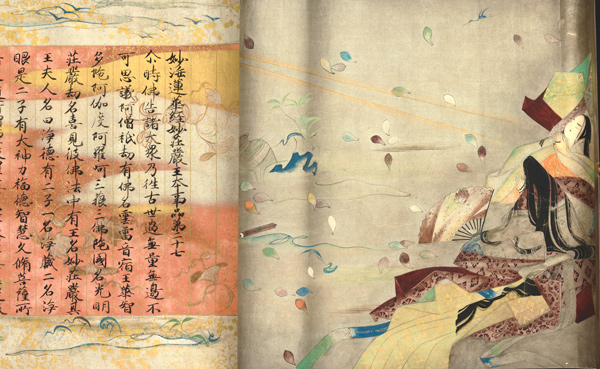 妙法蓮華経妙莊嚴王本事品第二十七
尒時佛告諸大衆乃往古世過無量無邊不
可思議阿僧祇劫有佛名雲雷音宿王華智
多陀阿伽度阿羅呵三藐三佛陀國名光明
莊嚴劫名喜見彼佛法中有王名妙莊嚴其
王夫人名曰淨德有二子一名淨藏二名淨
眼是二子有大神力福德智慧久脩菩薩所